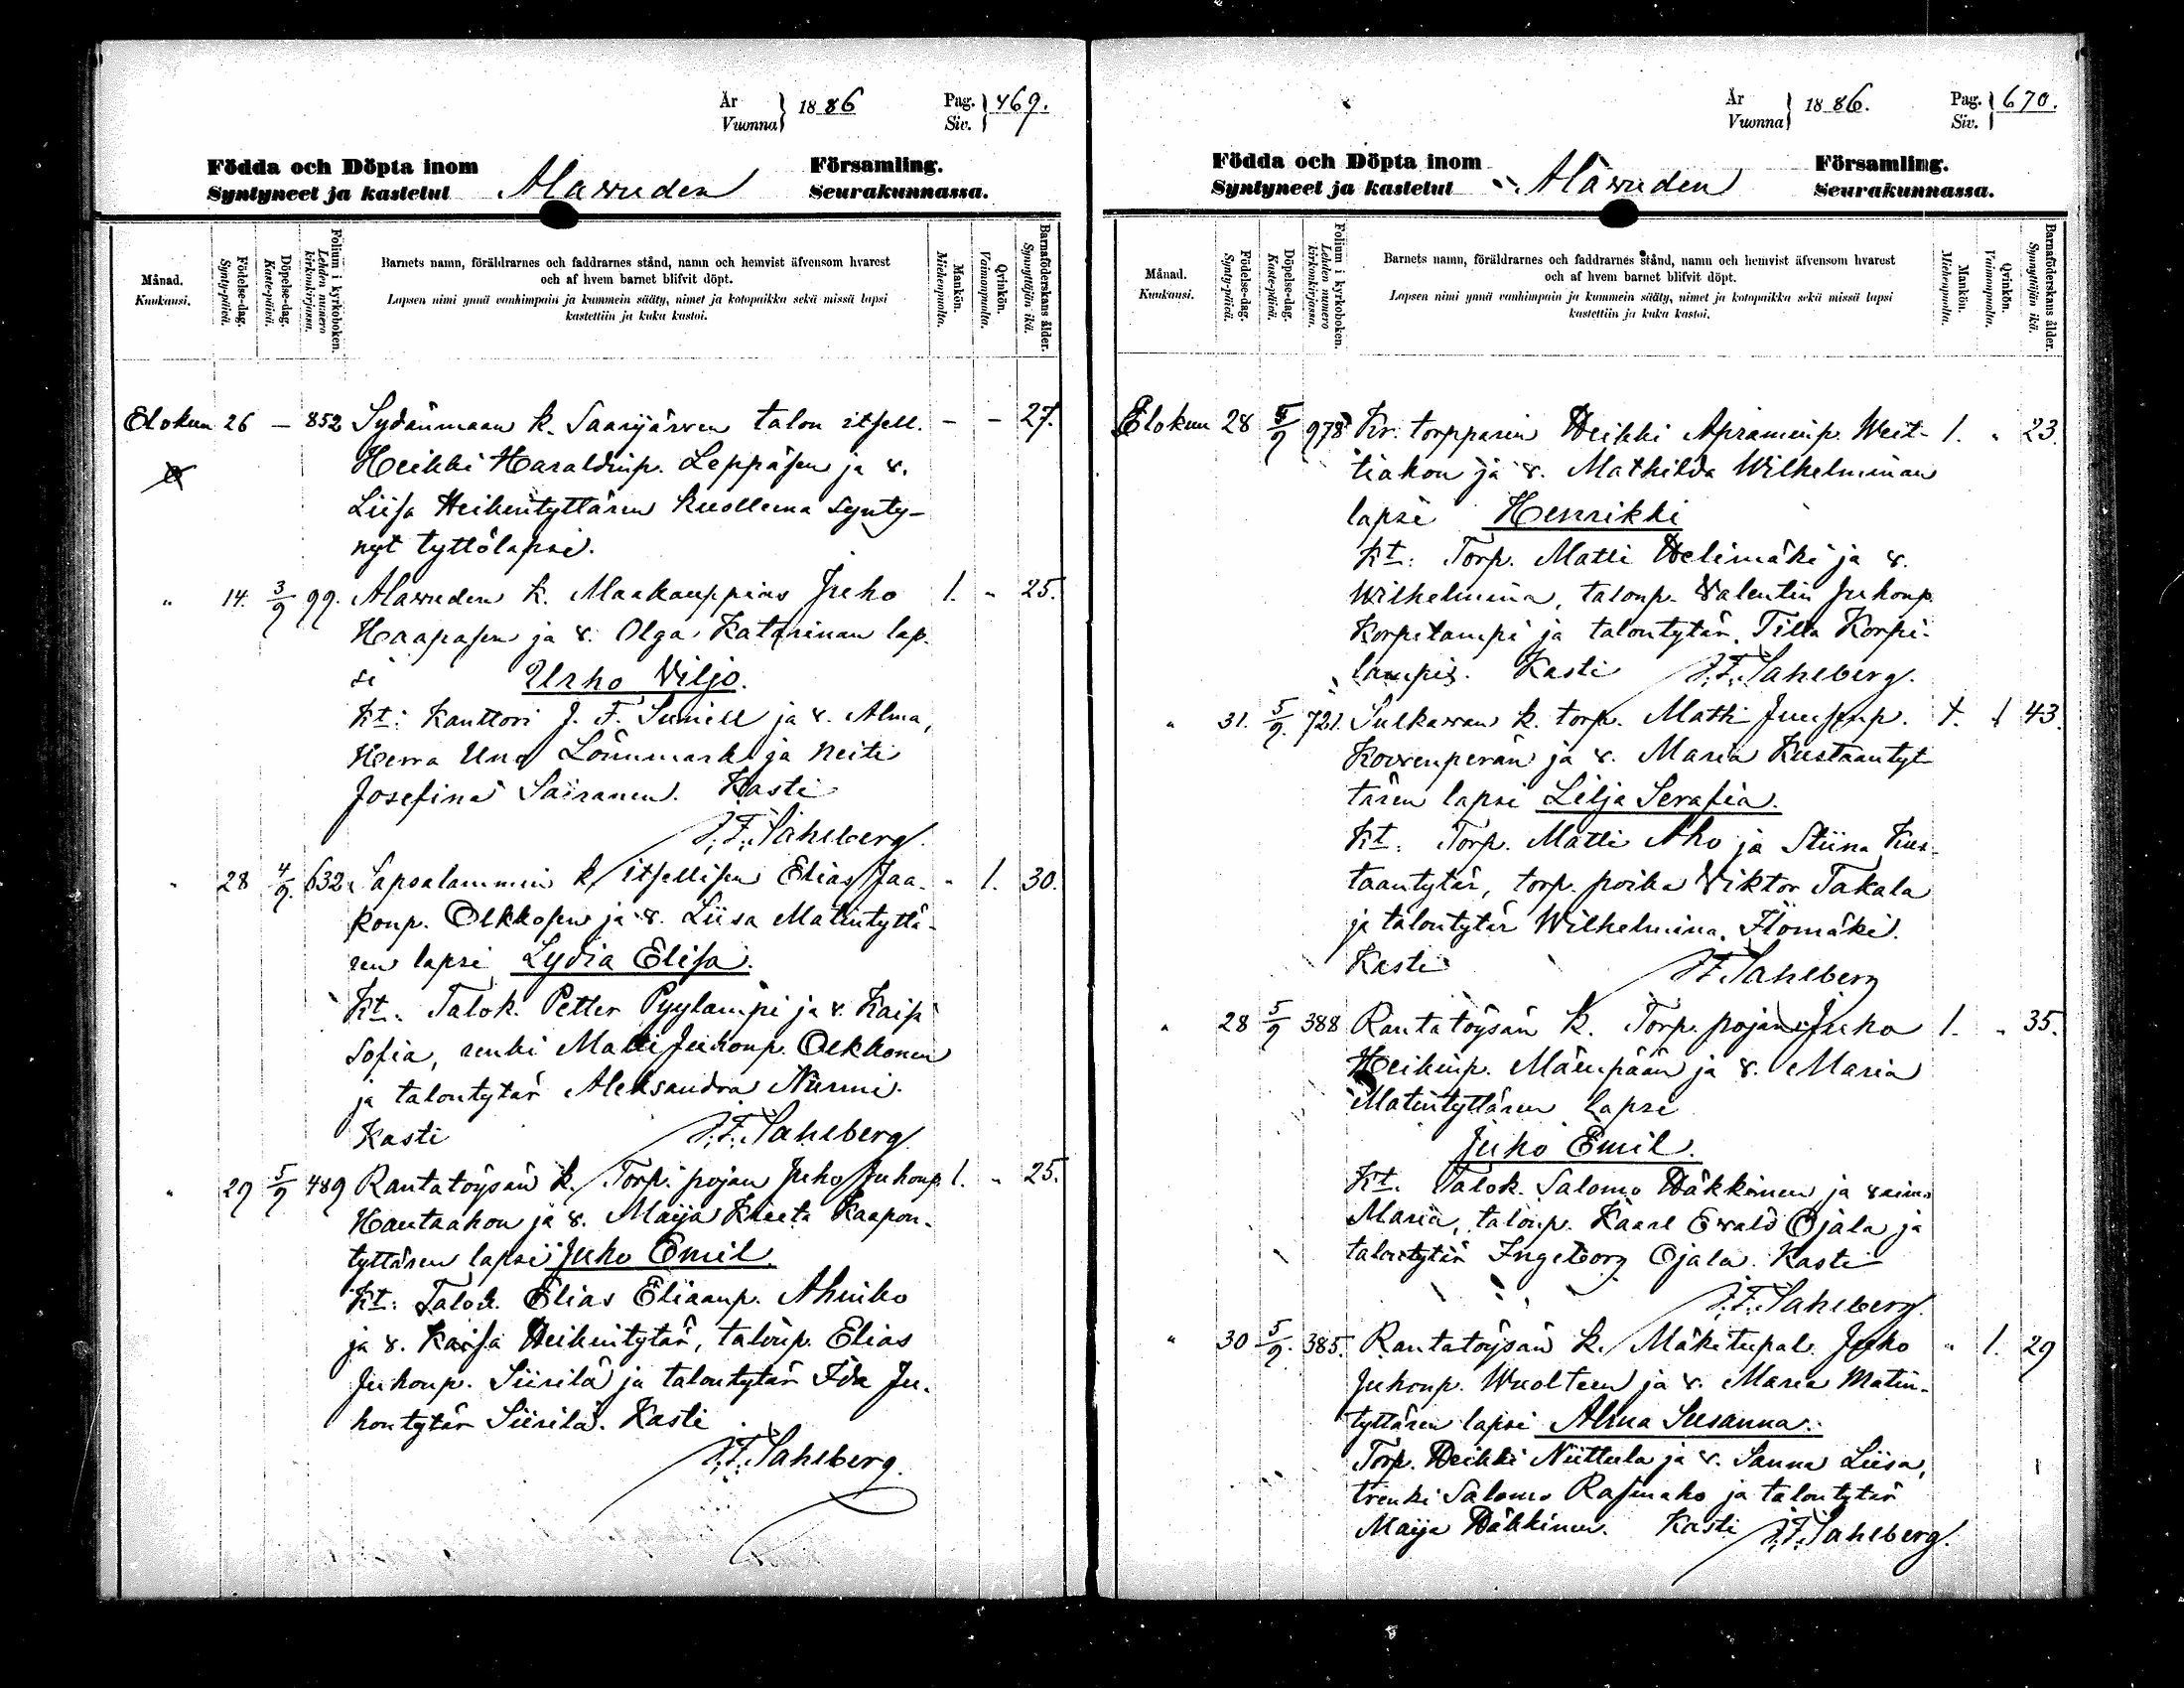 År
Vuonna } 1886
Pag.
Siv. } 469.
Födda och Döpta inom
Syntyneet ja kastetut
Alawuden
Församling.
Seurakunnassa.
Månad.
Kuukausi.
Födelse-dag.
Synty-päivä.
Döpelse-dag.
Kaste-päivä.
Folium i kyrkoboken.
Lehden numero kirkonkirjassa.
Barnets namn, föräldrarnes och faddrarnes stånd, namn och hemvist äfvensom hvarest
och af hvem barnet blifvit döpt.
Lapsen nimi ynnä vanhimpain ja kummein sääty, nimet ja kotopaikka sekä missä lapsi
kastettiin ja kuka kastoi.
Mankön.
Miehenpuolta.
Qvinkön.
Vaimonpuolta.
Barnaföderskans ålder.
Synnyttäjän ikä.
Elokuu 26 — 852 Sydänmaan k. Saarijärven talon itsell. - - 27.
Heikki Haraldinp. Leppäsen ja v.
Liisa Heikintyttären kuolleena synty-
nyt tyttölapsi.
" 14. 3/9 99. Alawuden k. Maakauppias Juho 1. " 25.
Haapasen ja v. Olga Katarinan lap-
si Urho Viljo.
Kt: Kanttori J. F. Sunell ja v. Alma,
Herra Uno Lönnmark ja neiti
Josefina Sairanen. Kasti
J. F. Sahlberg.
" 28 4/9. 632. Sapsalammin k. itsellisen Elias Jaa- " 1. 30.
konp. Olkkosen ja v. Liisa Matintyttä-
ren lapsi Lydia Elisa.
Kt. Talok. Petter Pyylampi ja v. Kaisa
Sofia, renki Matti Juhonp. Olkkonen
ja talontytär Aleksandra Nurmi.
Kasti J. F. Sahlberg.
" 29 5/9 489 Rantatöysän k. Torp. pojan Juho Juhonp. 1. " 25.
Hautaahon ja v. Maija Kreeta Kaapon-
tyttären lapsi Juho Emil.
Kt: Talok. Elias Eliaanp.
ja v. Kaisa Heikintytär, talonp. Elias
Juhonp. Siirilä ja talontytär Ida Ju-
hontytär Siirilä. Kasti
J. F. Sahlberg.
År
Vuonna } 1886.
Pag.
Siv. } 670.
Födda och Döpta inom
Syntyneet ja kastetut
Alawuden
Församling.
Seurakunnassa.
Månad.
Kuukausi.
Födelse-dag.
Synty-päivä.
Döpelse-dag.
Kaste-päivä.
Folium i kyrkoboken.
Lehden numero kirkonkirjassa.
Barnets namn, föräldrarnes och faddrarnes stånd, namn och hemvist äfvensom hvarest
och af hvem barnet blifvit döpt.
Lapsen nimi ynnä vanhimpain ja kummein sääty, nimet ja kotopaikka sekä missä lapsi
kastettiin ja kuka kastoi.
Mankön.
Miehenpuolta.
Qvinkön.
Vaimonpuolta.
Barnaföderskans ålder.
Synnyttäjän ikä.
Elokuu 28 5/9 978 Kr. torpparin Heikki Apraminp. Weit- 1. " 23.
tiahon ja v. Mathilda Wilhelminan
lapsi Henrikki
Kt: Torp. Matti Welimäki ja v.
Wilhelmina, talonp. Valentin Juhonp.
Korpilampi ja talontytär Tilta Korpi-
lampi. Kasti J. F. Sahlberg.
" 31. 5/9. 721. Sulkavan k. torp. Matti Juusonp. 1 43.
Kovenperän ja v. Maria Kustaantyt-
tären lapsi Lilja Serafia.
Kt: Torp. Matti Aho ja Stiina Kus-
taantytär, torp. poika Viktor Takala
ja talontytär Wilhelmina Ilomäki.
Kasti J. F. Sahlberg
" 28 5/9 388 Rantatöysän k. Torp. pojan Juho 1. " 35.
Heikinp. Mäenpään ja v. Maria
Matintyttären lapsi
Juho Emil.
Kt. Talok. Salomo Häkkinen ja vaimo
Maria, talonp. Kaarl Evald Ojala ja
talontytär Ingeborg Ojala. Kasti
J. F. Sahlberg.
" 30 5/9. 385. Rantatöysän k. Mäkitupal. Juho " 1. 29
Juhonp. Wuolteen ja v. Maria Matin-
tyttären lapsi Alma Susanna.
Torp. Heikki Niittula ja v. Sanna Liisa,
trenki Salomo ja talontytär
Maija Häkkinen. Kasti J. F. Sahlberg.